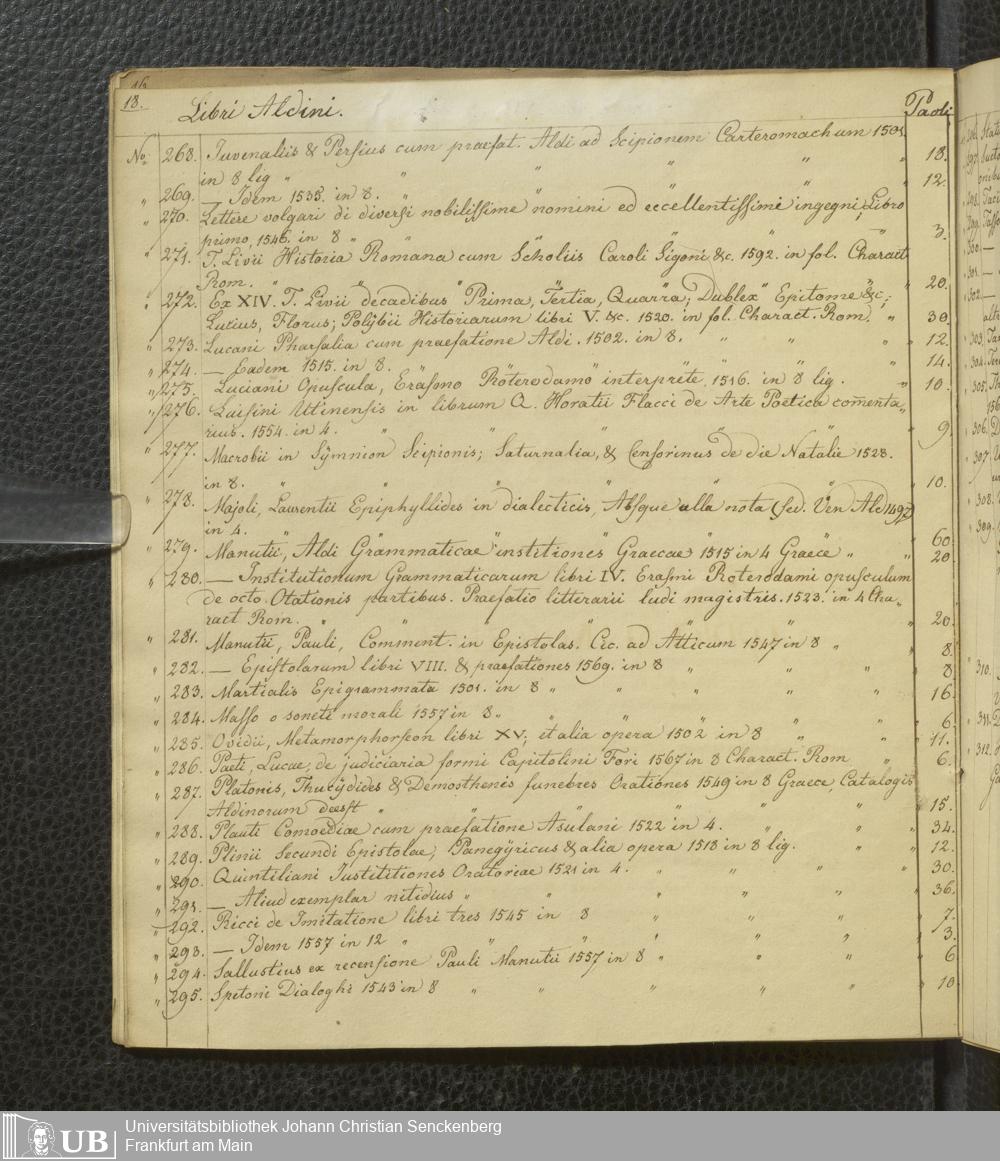 16
18.
Libri Aldini. Paoli
No. 268. Juvenallis & Persius cum praefat. Aldi ad Scipionem Carteromachum 1501
in 8 lig " " " " " 18.
" 269. — Idem 1535. in 8. " " " " 12.
" 270. Lettere volgari di diversi nobilissime nomini ed eccellentissimi ingegni, Libro
primo, 1546. in 8 " " " " " 3.
" 271. T. Livii Historia Romana cum Scholiis Caroli Sigoni &c. 1592. in fol. Charact
Rom. " " " " " " " 20.
" 272. Ex XIV. T. Livii decadibus Prima, Tertia, Quarra; Dublex Epitome &c;
Lucius, Florus; Polÿbii Historiarum libri V. &c. 1520. in fol. Charact. Rom. " 30.
" 273. Lucani Pharsalia cum praefatione Aldi. 1502. in 8. " " " 12.
" 274. — Eadem 1515. in 8. " " " " " 14.
" 275. Luciani Opuscula, Erasmo Roterodamo interprete, 1516. in 8 lig. " 10.
" 276. Luisini Uttinensis in librum Q. Horatii Flacci de Arte Poetica com̄enta„
rius. 1554. in 4. " " " " " 9.
" 277. Macrobii in Sÿmnion Scipionis; Saturnalia, & Censorinus de die Natalie 1528.
in 8. " " " " " 10.
" 278. Majoli, Laurentii Epiphyllides in dialecticis, Absque ulla nota (sed. Ven Ald 1497)
in 4. " " " " " 60.
" 279. Manutii, Aldi Grammaticae institiones Graecae 1515 in 4 Graece " " 20
" 280. — Institutionum Grammaticarum libri IV. Erasmi Roterodami opusculum
de octo Otationis partibus. Praefatio litterarii ludi magistris. 1523. in 4 Cha„
ract Rom. " " " " " 20.
" 281. Manutii, Pauli, Comment. in Epistolas. Cic. ad Atticum 1547 in 8 " " 8
" 282. — Epistolarum libri VIII. & praefationes 1569. in 8 " " " " 8
" 283. Martialis Epigrammata 1501. in 8 " " " " " 16
" 284. Masso o soneti morali 1557 in 8. " " " " " 6.
" 285. Ovidii, Metamorphorseon libri XV; et alia opera 1502 in 8 " " " 11.
" 286. Paeti, Lucae, de judiciaria formi Capitolini Fori 1567 in 8 Charact. Rom " 6.
" 287. Platonis, Thucÿdides & Demosthenis funebres Orationes 1549 in 8 Graece, Catalogis
Aldinorum deesft " " " " " 15.
" 288. Plauti Comoediae cum praefatione Asulani 1522 in 4. " " " 34.
" 289. Plinii Secundi Epistolae, Panegÿricus & alia opera 1518 in 8 lig. " " 12.
" 290. Quintiliani Justititiones Oratoriae 1521 in 4. " " " " 30.
" 291. — Aliud exemplar nitidius " " " " " 36.
" 292. Ricci de Imitatione libri tres 1545 in 8 " " " " 7.
" 293. — Idem 1557 in 12 " " " " " 3.
" 294. Sallustius ex recensione Pauli Manutii 1557 in 8 " " " " 6
" 295. Spetoni Dialoghi 1543 in 8 " " " " " 10
UB
Universitätsbibliothek Johann Christian Senckenberg
Frankfurt am Main